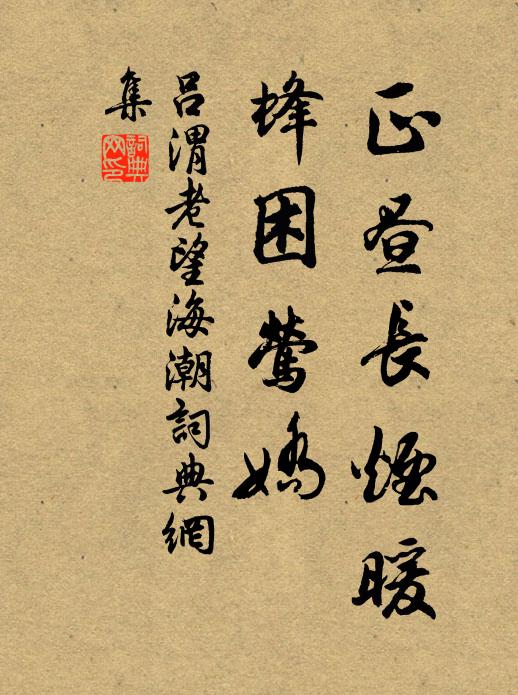 正昼長煙暖
蜂困鶯嬌
吕渭老望海潮詞典網
集
詞典網印